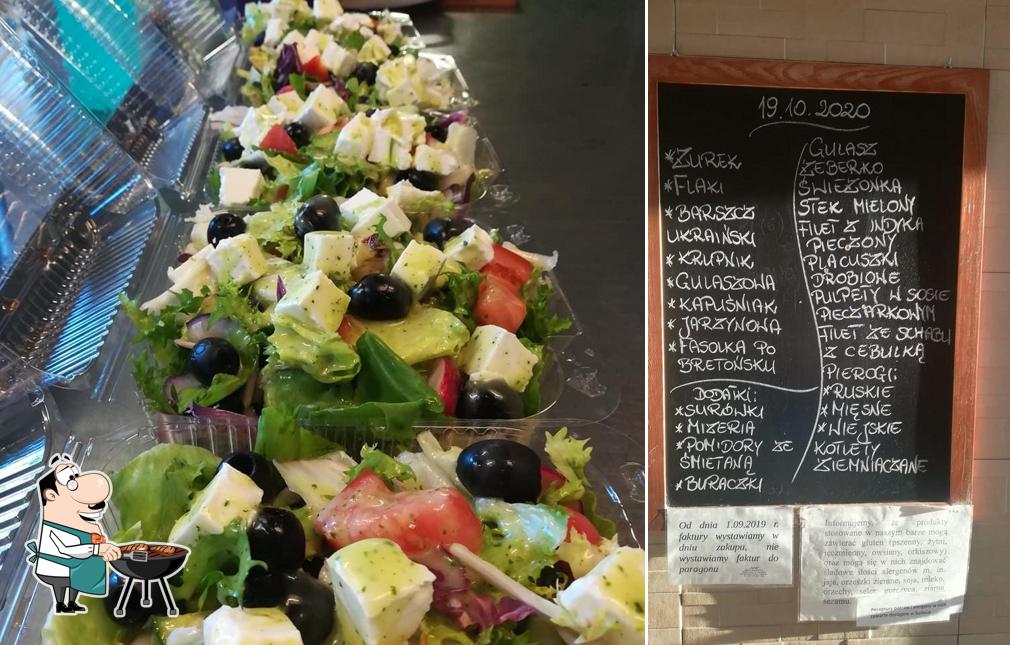 19.10.2020
*ŻUREK
*FLAKI
*BARSZCZ
UKRAIŃSKI
*KRUPNIK
*GULASZOWA
*KAPUŚNIAK
*JARZYNOWA
*FASOLKA PO
BRETOŃSKU
DODATKI:
*SURÓWKI
*MIZERIA
*POMIDORY ZE
ŚMIETANĄ
*BURACZKI
GULASZ
ŻEBERKO
ŚWIEŻONKA
STEK MIELONY
FILET Z INDYKA
PIECZONY
PLACUSZKI
DROBIOWE
PULPETY W SOSIE
PIECZARKOWYM
FILET ZE SCHABU
Z CEBULKĄ
PIEROGI:
*RUSKIE
*MIĘSNE
*WIEJSKIE
KOTLETY
ZIEMNIACZANE
Od dnia 1.09.2019 r.
faktury wystawiamy w
dniu zakupu, nie
wystawiamy faktur do
paragonu
Informujemy, że produkty
stosowane w naszym barze mogą
zawierać gluten (pszenny, żytni,
jęczmienny, owsiany, orkiszowy)
oraz mogą się w nich znajdować
śladowe ilości alergenów m. in.
jaja, orzeszki ziemne, soja, mleko,
orzechy, seler, gorczyca, ziarna
sezamu.